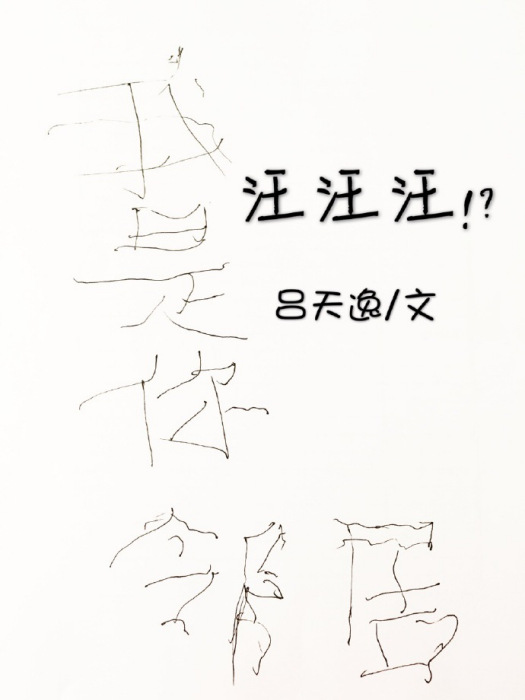 我是你
邻居
汪汪汪!?
吕天逸/文